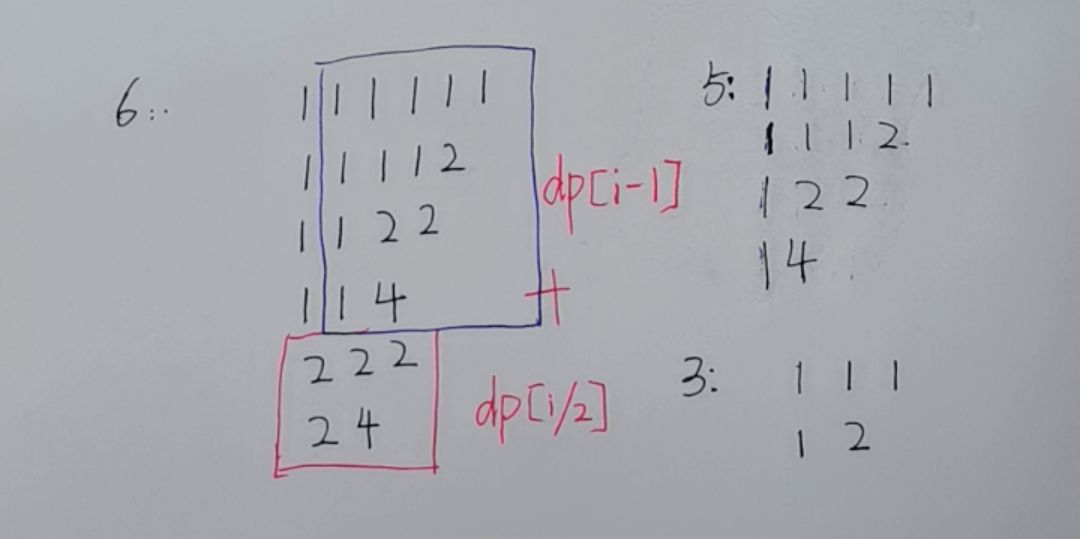 6:
1 1 1 1 1 1
1 1 1 1 2
1 1 2 2
1 1 4
2 2 2
2 4
dp[i-1]
+
dp[i/2]
5: 1 1 1 1 1
1 1 1 2
1 2 2
1 4
3: 1 1 1
1 2